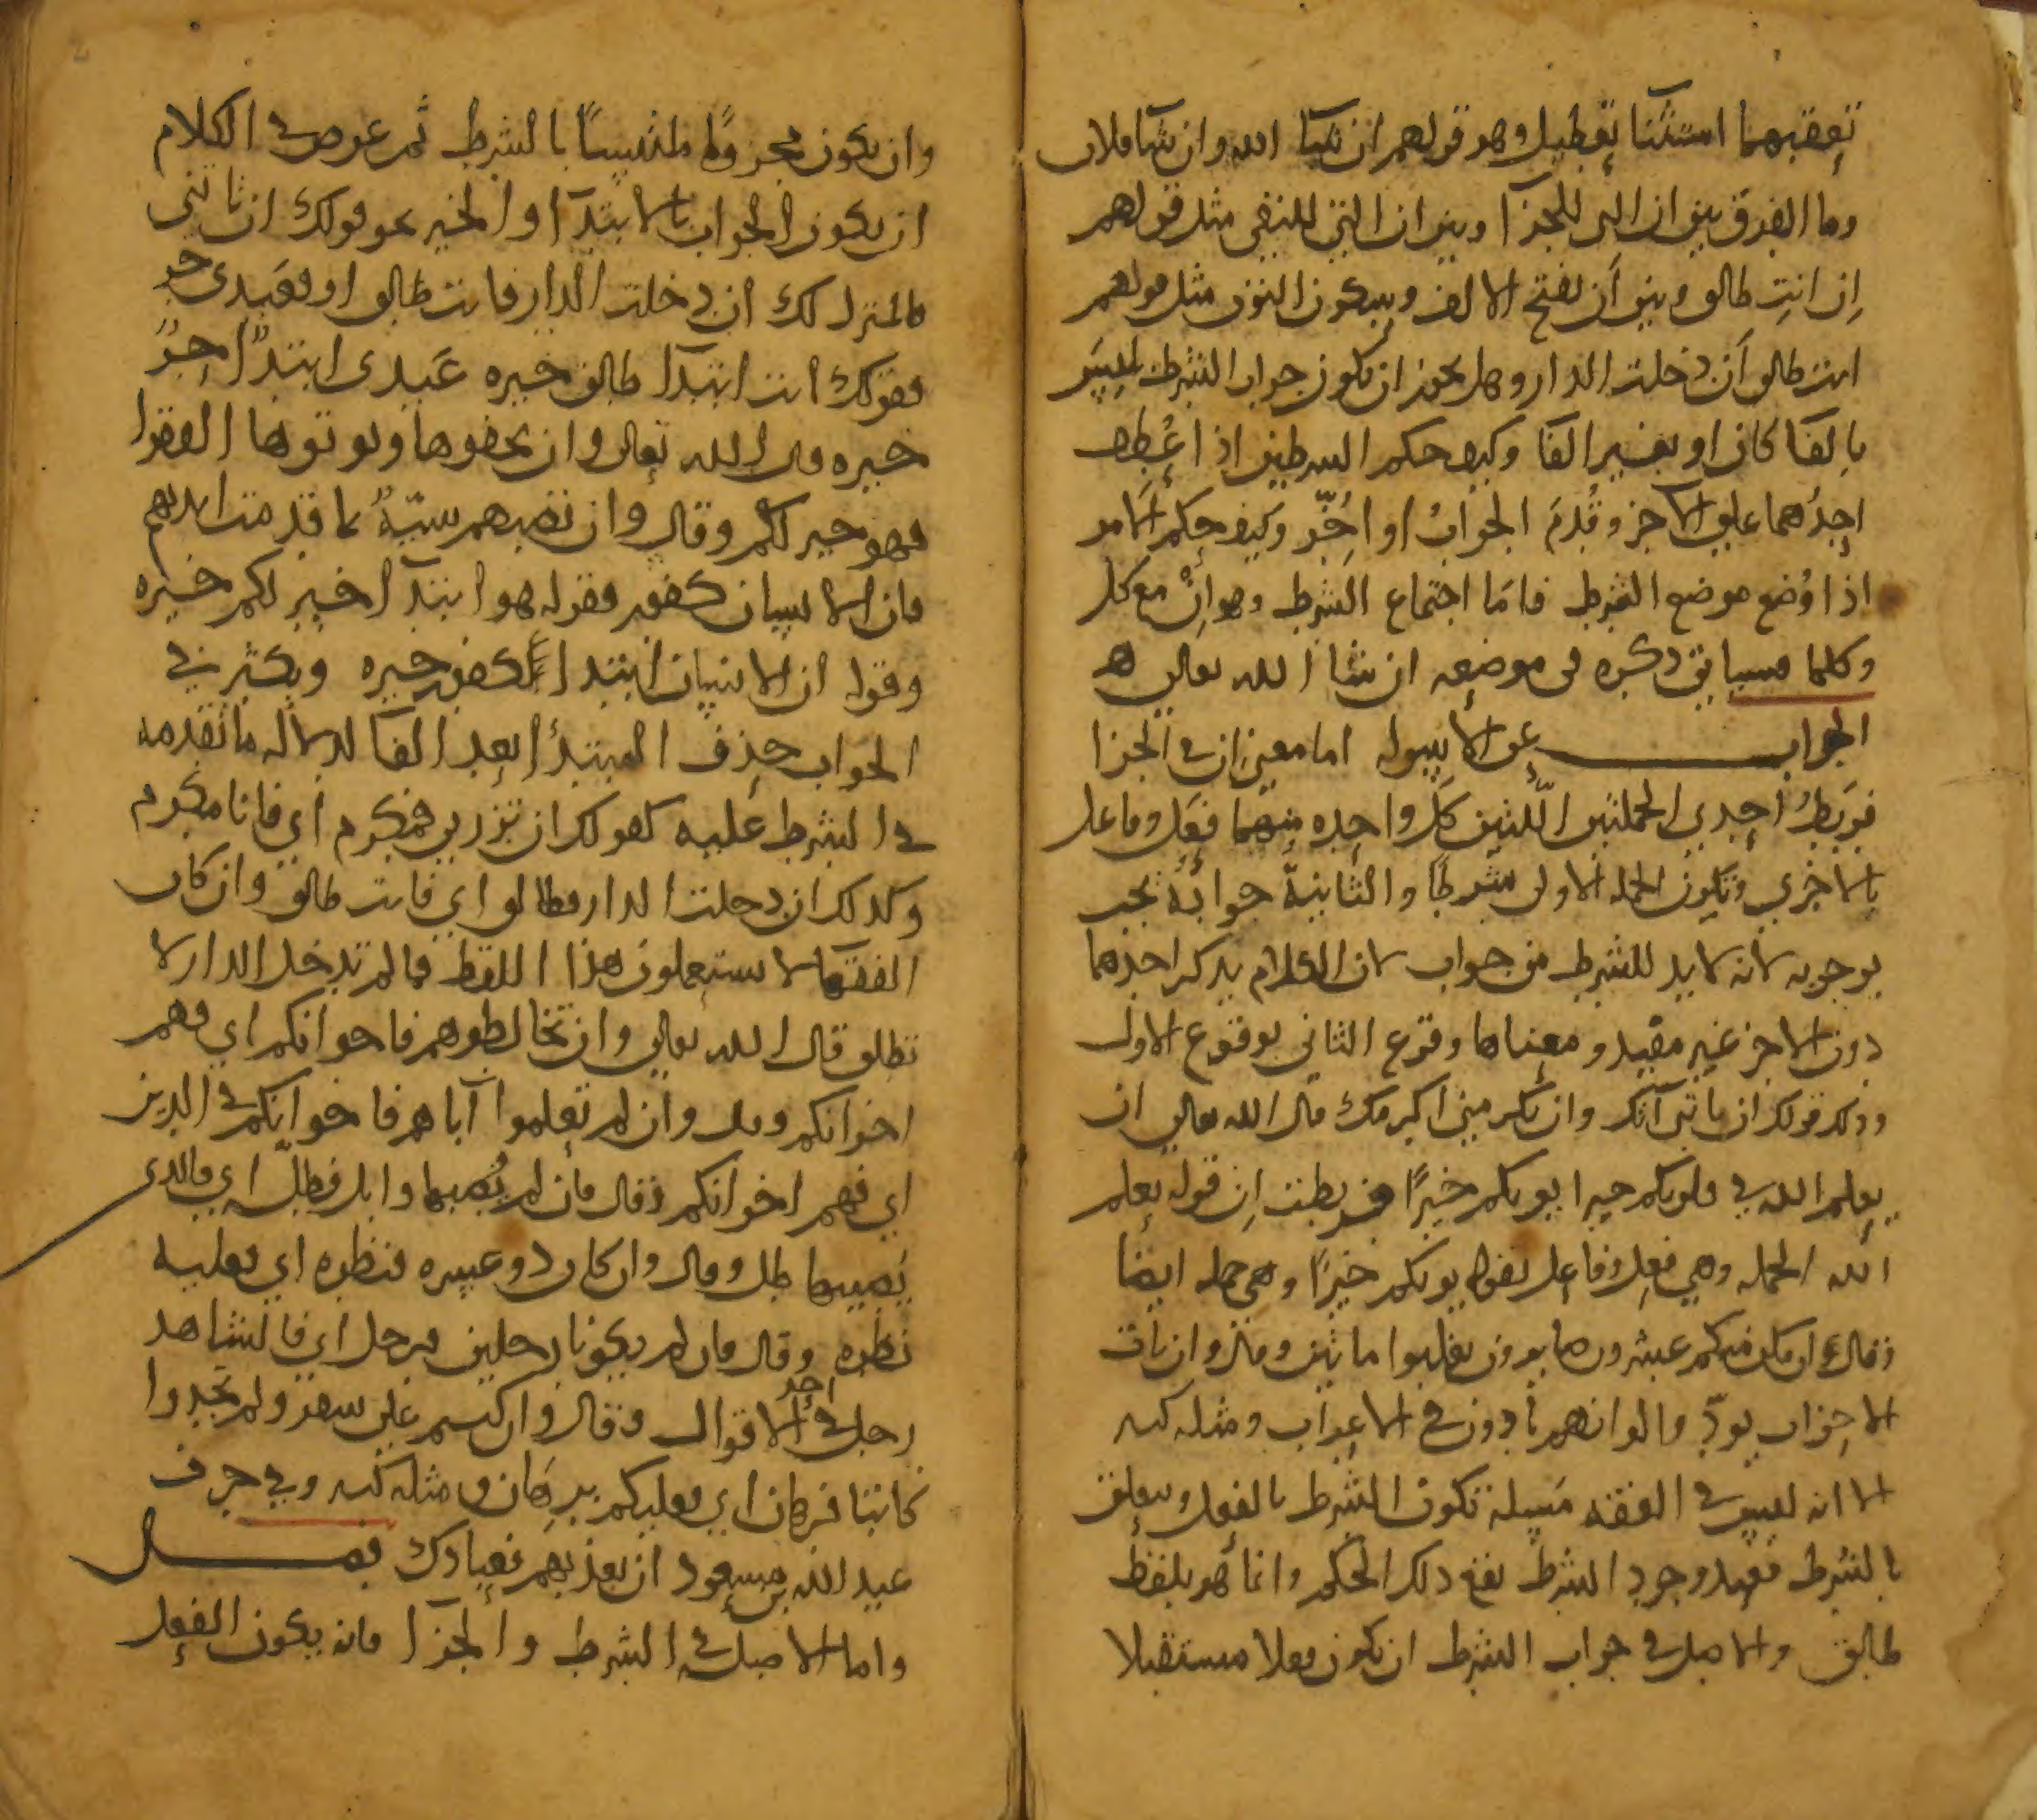 تعقبهما استثنا تعطيل وهو قولهم ان شا الله وان شا فلان
وما الفرق بين ان التي للجزآ وبين ان التي للنفي مثل قولهم
إن انتِ طالق وبين أن بفتح الالف وسكون النون مثل قولهم
انت طالق أن دخلت الدار وهل يجوز ان يكون جواب الشرط
بالفآ كان او بغير الفآ وكيف حكم الشرطين اذا عُطِف
احدُهما على الاخر وقُدمَ الجوابُ او اُخّر وكيف حكم الامر
اذا وُضع موضع الشرط فامَا اجتماع الشرط وهو انْ مع كل
وكلما فسياتي ذكره في موضعه ان شا الله تعالى
الجواب عن الاسوله اما معنى ان في الجزا
فرَبطُ احدى الجملتين اللّتين كل واحده منهما فعل وفاعل
بالاخرى وتكون الجمله الاولى شرطًا والثانيةُ جوابَهُ تجب
بوجوبه لانه لابد للشرط من جواب لان الكلام بذكر احدهما
دون الاخر غير مفيد ومعناها وقوع الثاني بوقوع الاول
وذلك قولك ان تاتني آتك وان تكرمني اكرمك قال الله تعالى ان
يعلم الله في قلوبكم خيرا يوتكم خيرًا فربطت اِن قوله يعلم
الله الجمله وهي فعل وفاعل بقوله يوتكم خيرًا وهي جمله ايضا
وقال ان يكن منكم عشرون صابرون يغلبوا مائتين وقال وان يات
الاحزاب يودّ والو انهم بادون في الاعراب ومثله كثير
الا انه ليس في الفقه مسيله تكون الشرط بالفعل ويتعلق
بالشرط فعند وجود الشرط يقع ذلك الحكم وانما هو بلفظ
طالق والاصل في جواب الشرط ان يكون فعلا مستقبلا
وان يكون مجزومًا ملتبسًا بالشرط ثم عرض في الكلام
ان يكون الجواب بالابتدآ والخبر نحو قولك ان تاتني
فالمنزل لك ان دخلت الدار فانت طالق او فعَبدى حر
فقولك انت ابتدآ طالق خبره عَبدى ابتدآ حرٌ
خبره قال الله تعالى وان تخفوها وتوتوها الفقرا
فهو خير لكم وقال وان تصبهم سيّةٌ بما قدمت ايديهم
فان الانسان كفور فقوله هو ابتدآ خير لكم خبره
وقوله ان الانسان ابتدا كفور خبره ويكثر في
الجواب حذف المبتدأ بعد الفآ لدلالة ما تقدمه
في الشرط عليه كقولك ان تزرني فمكرم أي فانا مكرم
وكذلك ان دخلت الدار فطالق اي فانت طالق وان كان
الفقهآ لا يستعملون هذا اللفظ فما لم تدخل الدار لا
تطلق قال الله تعالى وان تخالطوهم فاخوانكم اي فهم
اخوانكم وقال وان لم تعلموا آباهم فاخوانكم في الدين
اي فهم اخوانكم وقال فان لم يُصبها وابل فطلّ اي فالذي
يُصيبها طل وقال وان كان ذو عسره فنظره اي فعليه
نظره وقال فان لم يكونا رجلين فرجل اي فالشاهد
رجل في احد الاقوال وقال وان كنتم على سفر ولم تجدوا
كاتبا فرهان اي فعليكم برهان ومثله كثير وفي حرف
عبد الله بن مسعود ان تعذبهم فعبادك فصل
واما الاصل في الشرط والجزآ فانه يكون الفعل